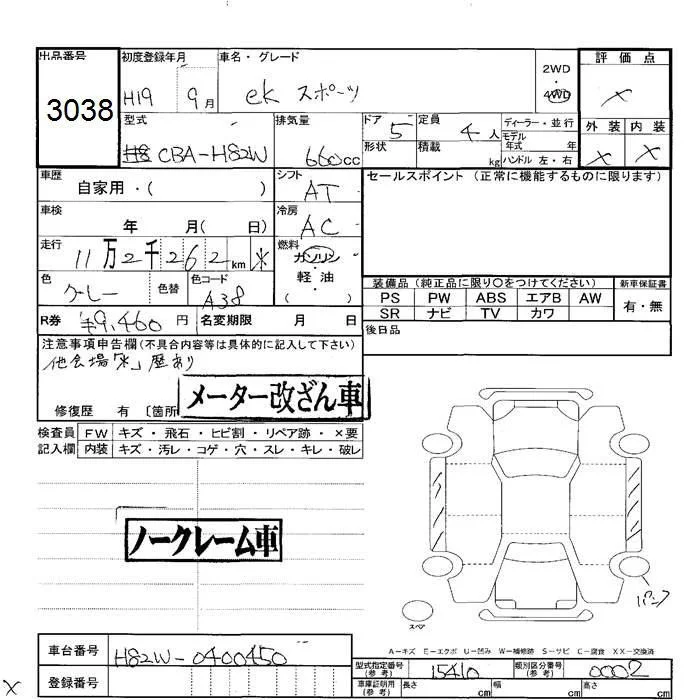 出品番号 初度登録年月 車名・グレード 2WD 評価点
3038 H19 9月 ek スポーツ 4WD ×
型式 排気量 ドア 定員 ディーラー・並行 外装 内装
CBA-H82W 660cc 5 4人 モデル年式 年 × ×
形状 積載 kg ハンドル 左・右
車歴 自家用・( ) シフト AT セールスポイント (正常に機能するものに限ります)
車検 年 月( 日) 冷房 AC
走行 11万2千262km * 燃料 ガソリン
軽油
色 グレー 色替 色コード A38 ( )
装備品 (純正品に限り○をつけてください) 新車保証書
PS PW ABS エアB AW 有・無
SR ナビ TV カワ
R券 ¥9,460円 名変期限 月 日 後日品
注意事項申告欄(不具合内容等は具体的に記入して下さい)
他会場「*」歴あり
メーター改ざん車
修復歴 有 〔箇所
検査員 FW キズ・飛石・ヒビ割・リペア跡・×要
記入欄 内装 キズ・汚レ・コゲ・穴・スレ・キレ・破レ
ノークレーム車
パンク
スペア
A-キズ E-エクボ U-凹み W-補修跡 S-サビ C-腐食 XX-交換済
車台番号 H82W-0400450 型式指定番号(参考) 15410 類別区分番号(参考) 0002
登録番号 車庫証明用(参考) 長さ cm 幅 cm 高さ cm
×